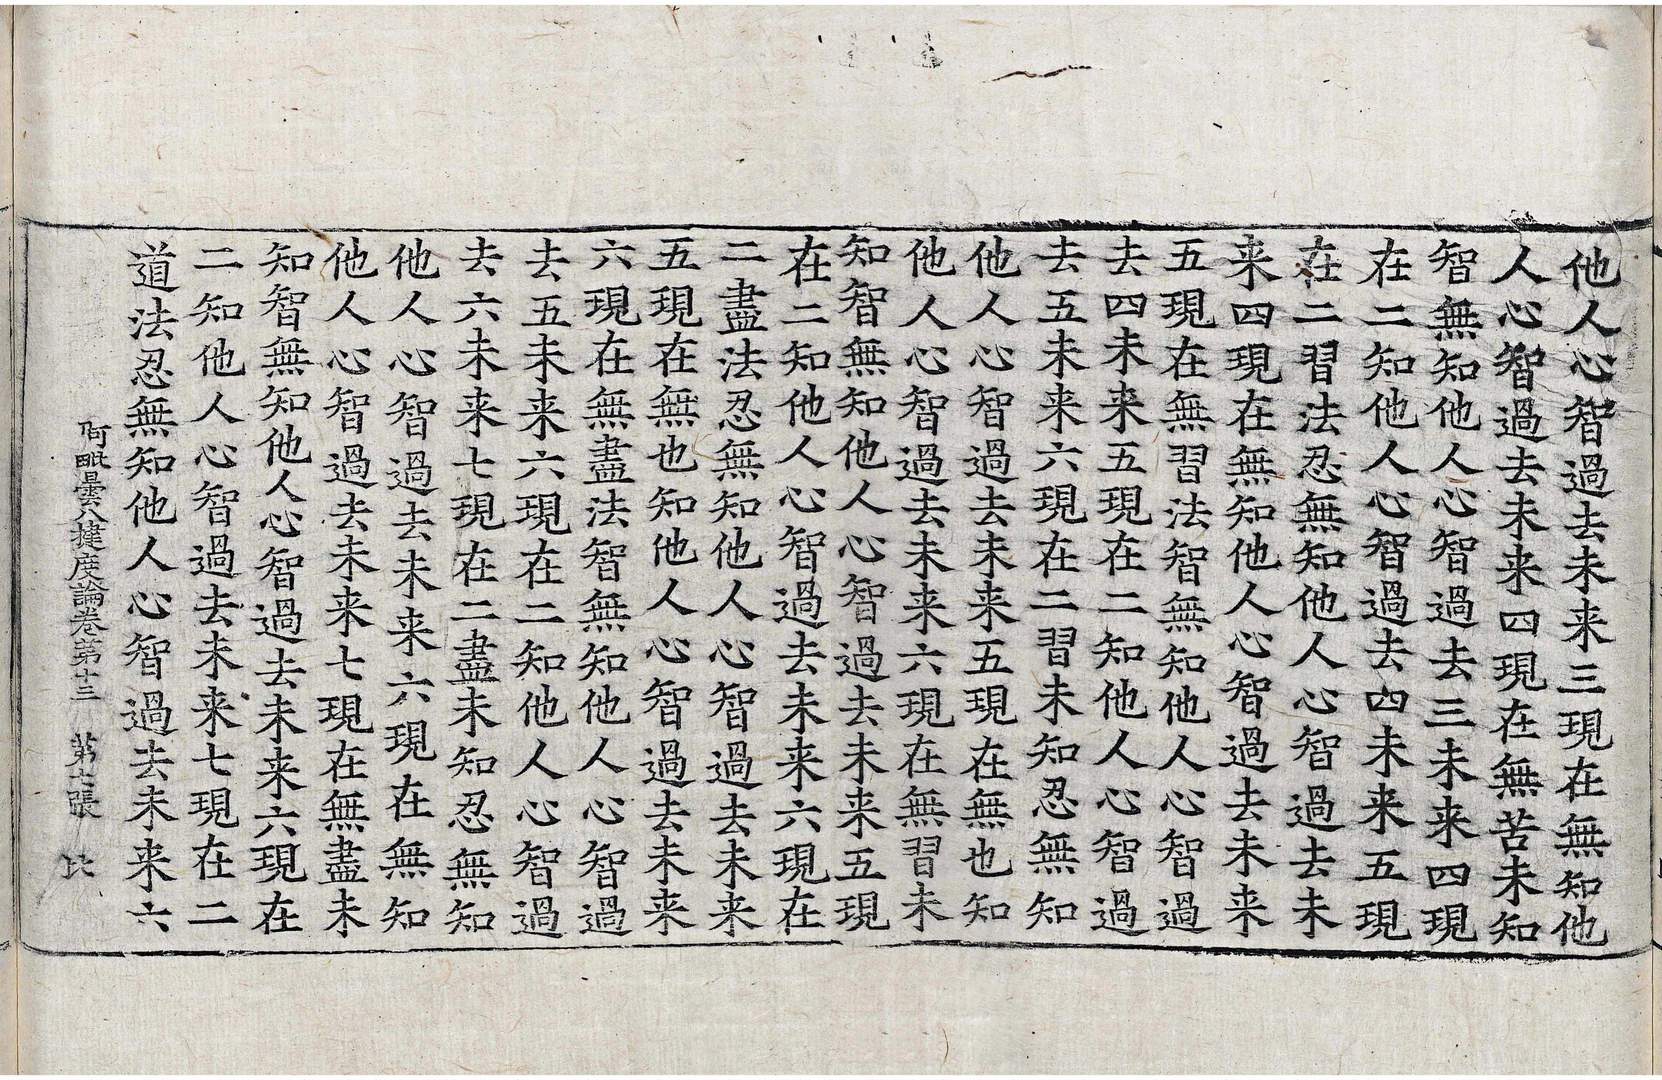 他人心智過去未来三現在無知他
人心智過去未来四現在無苦未知
智無知他人心智過去三未来四現
在二知他人心智過去四未来五現
在二習法忍無知他人心智過去未
来四現在無知他人心智過去未来
五現在無習法智無知他人心智過
去四未来五現在二知他人心智過
去五未来六現在二習未知忍無知
他人心智過去未来五現在無也知
他人心智過去未来六現在無習未
知智無知他人心智過去未来五現
在二知他人心智過去未来六現在
二盡法忍無知他人心智過去未来
五現在無也知他人心智過去未来
六現在無盡法智無知他人心智過
去五未来六現在二知他人心智過
去六未来七現在二盡未知忍無知
他人心智過去未来六現在無知
他人心智過去未来七現在無盡未
知智無知他人心智過去未来六現在
二知他人心智過去未来七現在二
道法忍無知他人心智過去未来六
阿毗曇八揵度論卷第十三 第七張